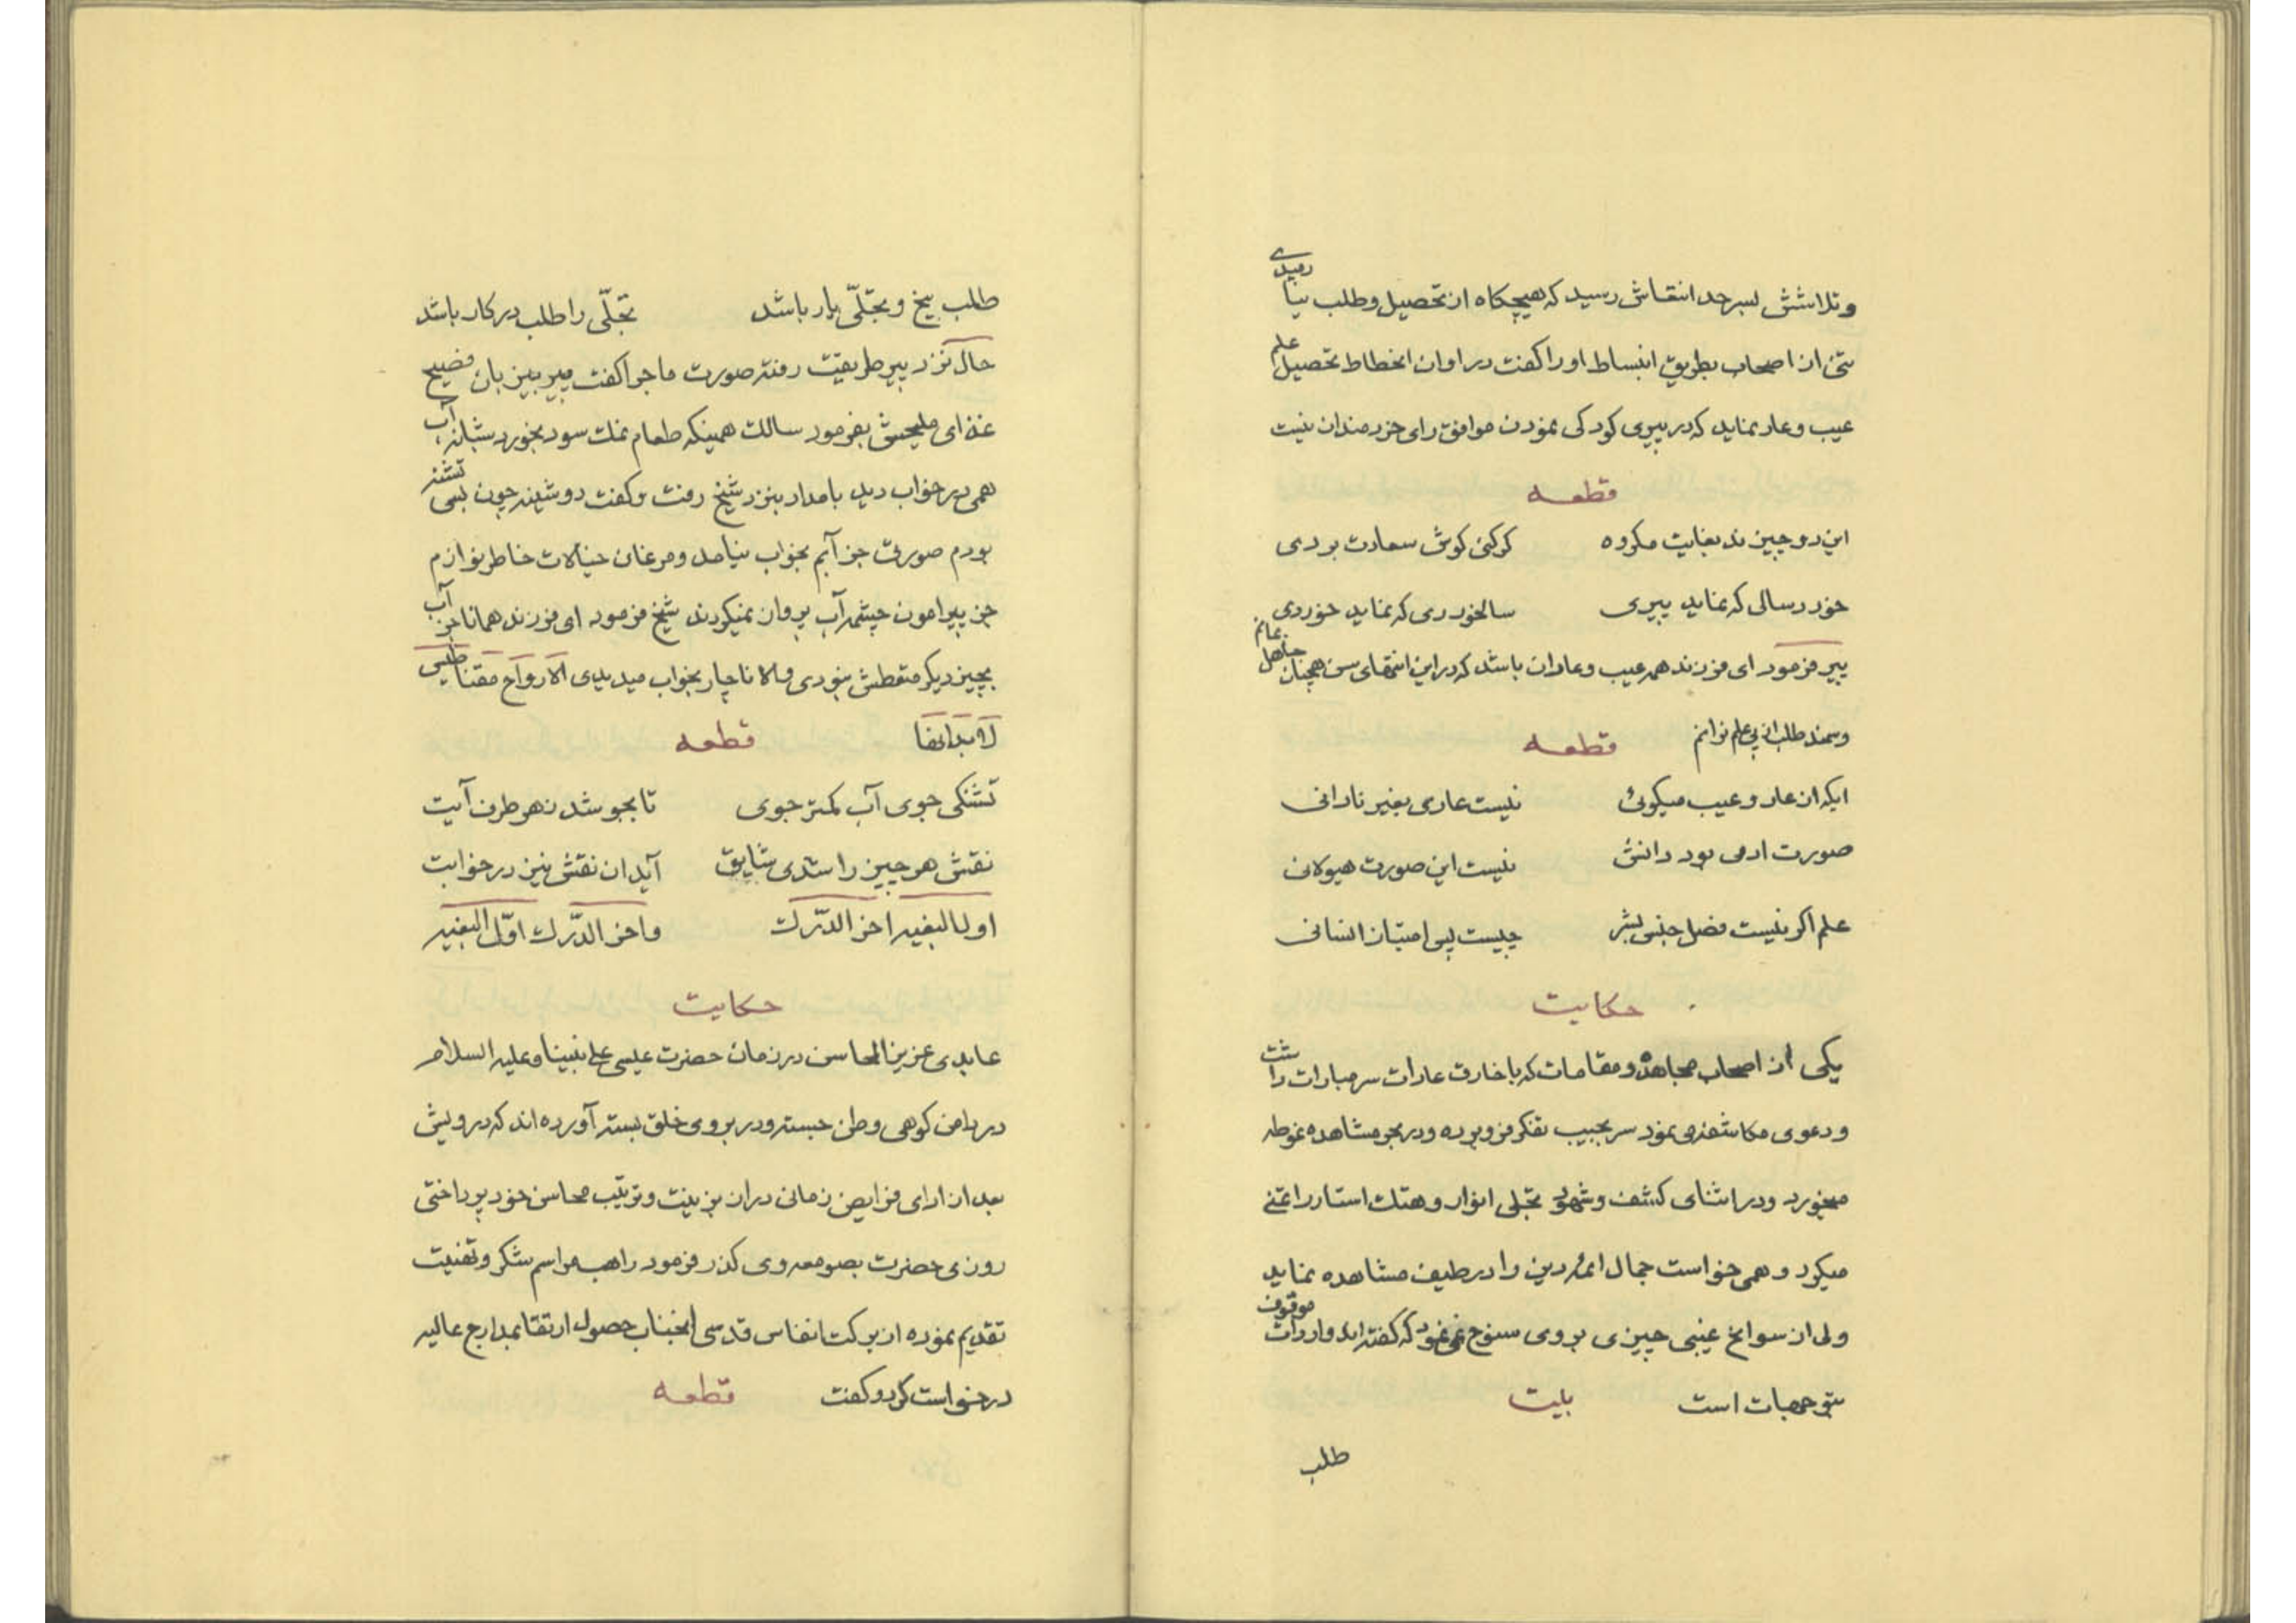 وتلاشش بسرحد انتقاش رسید که هیچکاه از تحصیل وطلب نیارمیدی
تنی از اصحاب بطریق انبساط اورا کفت در اوان انحطاط تحصیل علم
عیب وعار نماید که در پیری کودکی نمودن موافق رای خردمندان نیست
قطعه
این دو چیزند بغایت مکروه کر کنی کوش سعادت بردی
خورد سالی که نماید پیری سالخوردی که نماید خوردی
پیر فرمود ای فرزند همه عیب وعار ان باشد که در این انتهای سن همچنان جاهل مانم
وسمند طلب از پی علم نرانم قطعه
ایکه از عار وعیب میکوئی نیست عاری بغیر نادانی
صورت ادمی بود دانش نیست این صورت هیولانی
علم اکر نیست فضل جنس بشر چیست پس امتیاز انسانی
حکایت
یکی از اصحاب مجاهده ومقامات که با خارق عادات سر مبارات داشت
ودعوی مکاشفه می نمود سر بجیب تفکر فرو برده ودر بحر مشاهده غوطه
میخورد ودر اثنای کشف وشهود تجلی انوار وهتک استار را تمنی
میکرد وهمی خواست جمال ائمه دین را در طیف مشاهده نماید
ولی از سوانح غیبی چیزی بروی سنوح نمی نمود که کفته اند واردات موقوف
بتوجهات است بیت
طلب
طلب بیخ وتجلّی بار باشد تجلّی را طلب در کار باشد
حال نزد پیر طریقت رفته صورت ماجرا کفت پیر بیزبان فصیح
غذای ملیحش بفرمود سالک همینکه طعام نمک سود بخورد شبانه آب
همی در خواب دید بامداد بنزد شیخ رفت وکفت دوشینه چون بسی تشنه
بودم صورتی جز آبم بخواب نیامد ومرغان خیالات خاطر نوازم
جز پیرامون چشمه آب پرواز نمیکردند شیخ فرمود ای فرزند همانا جز آب
بچیز دیکر متعطش نبودی والا ناچار بخواب میدیدی الارواح مقناطیس
لابدانها قطعه
تشنکی جوی آب کمتر جوی تا بجوشد ز هر طرف آبت
نقش هر چیز را شدی شایق آید ان نقش نیز در خوابت
اول البغیه اخر الدّرک واخر الدّرک اوّل البغیه
حکایت
عابدی عزیز المحاسن در زمان حضرت عیسی علی نبینا وعلیه السلام
در دامن کوهی وطن جسته ودر بروی خلق بسته آورده اند که درویش
بعد از ادای فرایض زمانی دراز بزینت وترتیب محاسن خود پرداختی
روزی حضرت بصومعه وی کذر فرمود راهب مراسم شکر وتهنیت
تقدیم نموده از برکت انفاس قدسی انجناب حصول ارتقا بمدارج عالیه
درخواست کرد وکفت قطعه